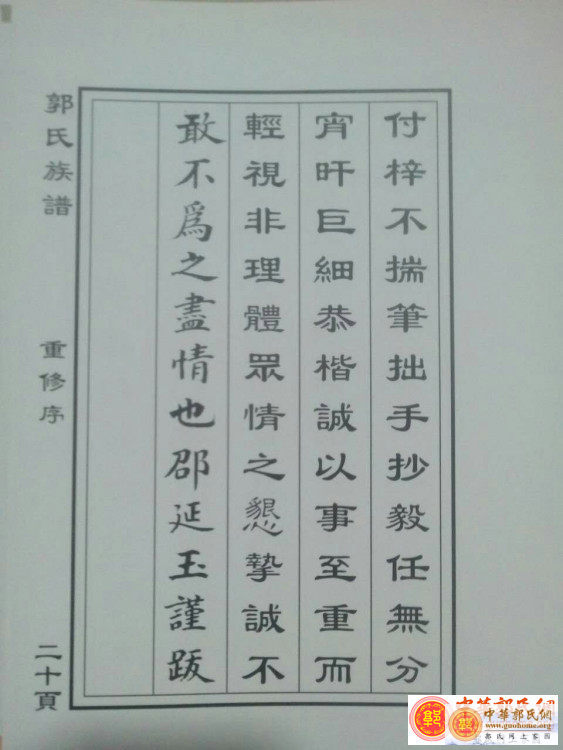 付梓不揣筆拙手抄毅任無分
宵旰巨細恭楷誠以事至重而
輕視非理體眾情之懇摯誠不
敢不爲之盡情也邵延玉謹跋
郭氏族譜
重修序
二十頁
中華郭氏網
www.guohome.org
郭氏網上家園